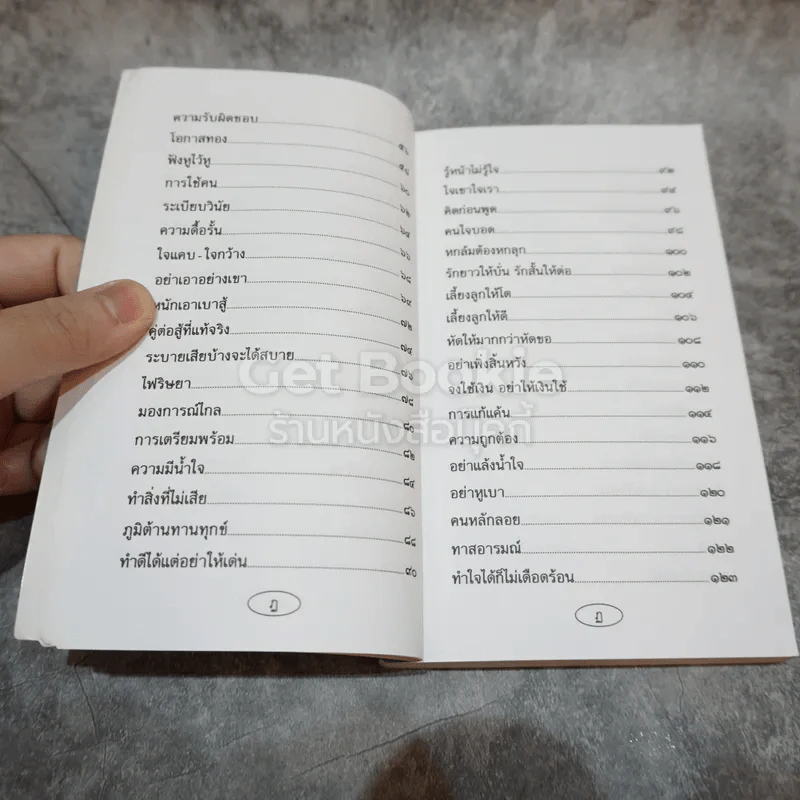 ความรับผิดชอบ ๕๖
โอกาสทอง ๕๘
ฟังหูไว้หู ๖๐
การใช้คน ๖๒
ระเบียบวินัย ๖๔
ความดื้อรั้น ๖๖
ใจแคบ - ใจกว้าง ๖๘
อย่าเอาอย่างเขา ๖๙
หนักเอาเบาสู้ ๗๒
คู่ต่อสู้ที่แท้จริง ๗๔
ระบายเสียบ้างจะได้สบาย ๗๖
ไฟริษยา ๗๘
มองการณ์ไกล ๘๐
การเตรียมพร้อม ๘๒
ความมีน้ำใจ ๘๔
ทำสิ่งที่ไม่เสีย ๘๖
ภูมิต้านทานทุกข์ ๘๘
ทำดีได้แต่อย่าให้เด่น ๙๐
ฎ
รู้หน้าไม่รู้ใจ ๙๒
ใจเขาใจเรา ๙๔
คิดก่อนพูด ๙๖
คนใจบอด ๙๘
หกล้มต้องหกลุก ๑๐๐
รักยาวให้บั่น รักสั้นให้ต่อ ๑๐๒
เลี้ยงลูกให้โต ๑๐๔
เลี้ยงลูกให้ดี ๑๐๖
หัดให้มากกว่าหัดขอ ๑๐๘
อย่าเพิ่งสิ้นหวัง ๑๑๐
จงใช้เงิน อย่าให้เงินใช้ ๑๑๒
การแก้แค้น ๑๑๔
ความถูกต้อง ๑๑๖
อย่าแล้งน้ำใจ ๑๑๘
อย่าหูเบา ๑๒๐
คนหลักลอย ๑๒๑
ทาสอารมณ์ ๑๒๒
ทำใจได้ก็ไม่เดือดร้อน ๑๒๓
ฏ
Get Bookie
ร้านหนังสือบุคกี้